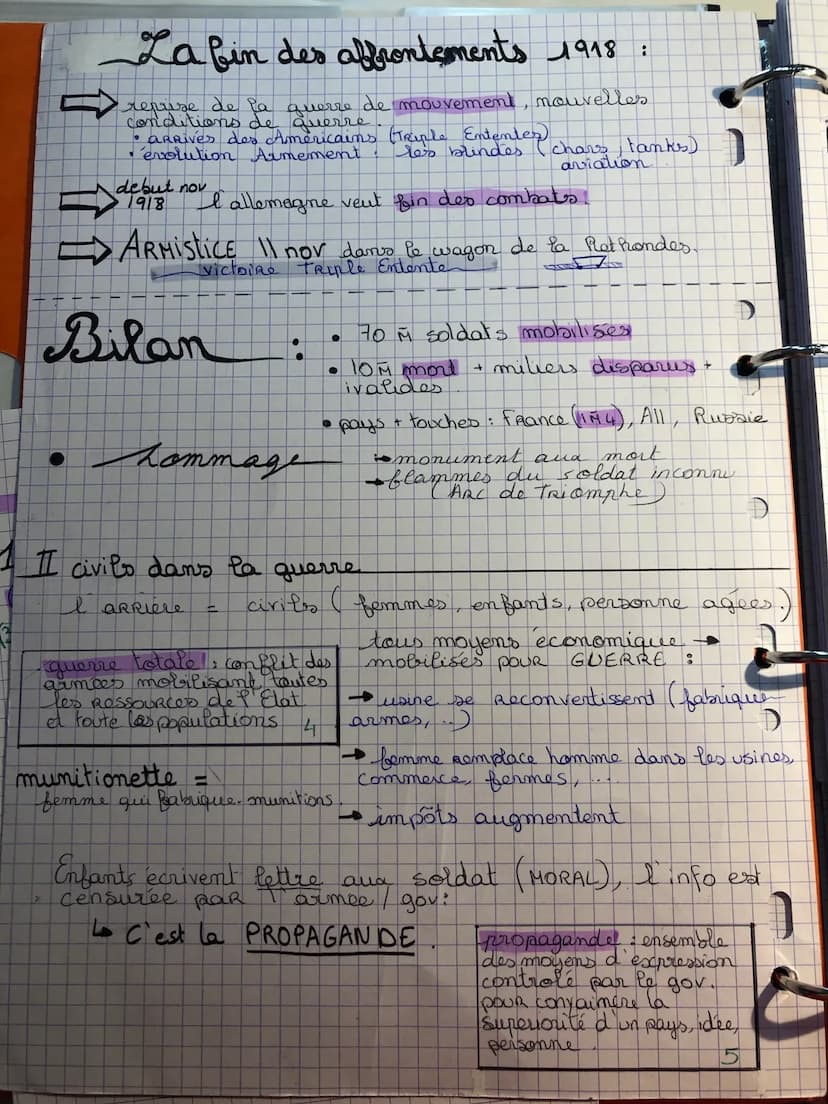 La fin des affrontements 1918 :
reprise de la guerre de mouvement, nouvelles
conditions de guerre.
• arrivés des Américains (Triple Ententez)
• évolution Armement : les blindés (chars, tanks)
aviation
debut nov
1918 l'allemagne veut fin des combats!
ARMISTICE 11 nov dans le wagon de la Rethondes.
victoire Triple Entente
Bilan : • 70 M soldats mobilisés
• 10M mort + miliers disparus +
ivalides
• pays + touches : France (1M4), All, Russie
• hommage → monument aux mort
→ flammes du soldat inconnu
(Arc de Triomphe)
II civils dans la guerre
l'arriére = civils (femmes, enfants, personne agées.)
tous moyens économique →
mobilisés pour GUERRE :
guerre totale : conflit des
armées mobilisant toutes
les ressources de l'État
et toute les populations 4
→ usine se reconvertissent (fabrique
armes, ..)
→ femme remplace homme dans les usines,
commerce, fermes, ...
munitionette =
femme qui fabrique munitions.
→ impôts augmentent
Enfants écrivent lettre aux soldat (MORAL), l'info est
censurée par l'armée / gov:
↳ C'est la PROPAGANDE.
propagande : ensemble
des moyens d'expression
contrôlé par le gov.
pour convaincre la
superiorité d'un pays, idée,
personne.
5